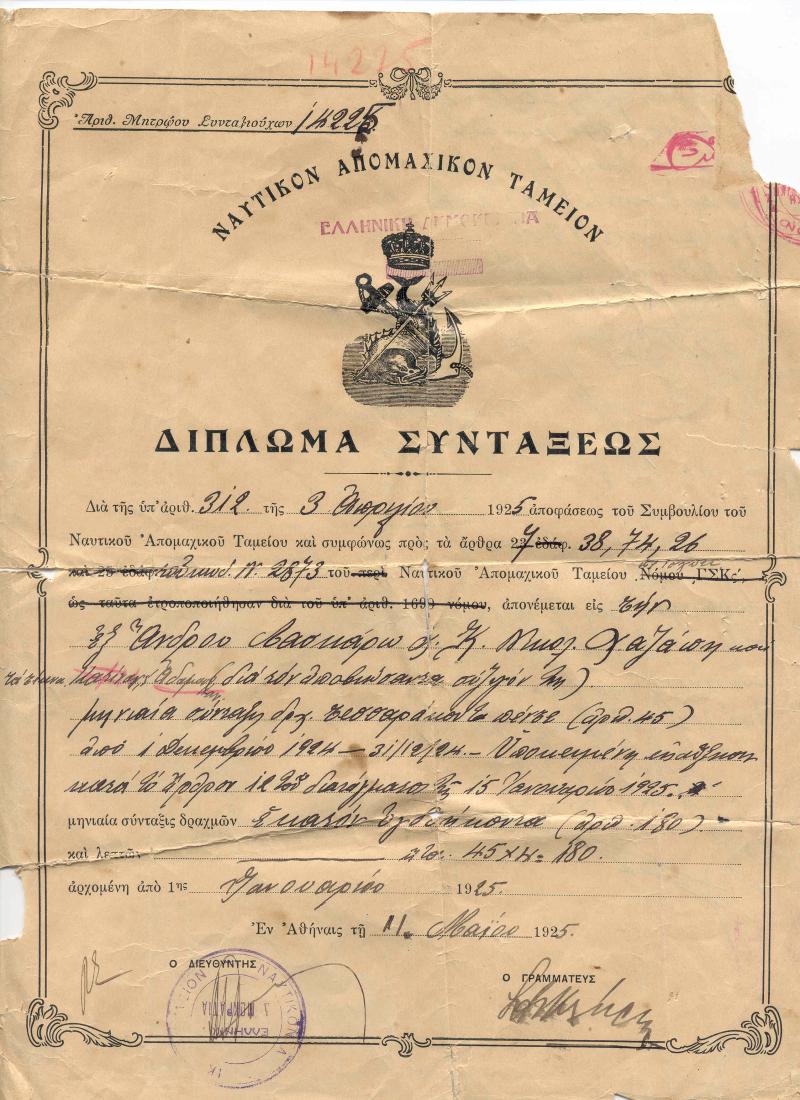 14225
Ἀριθ. Μητρῴου Συνταξιούχων 14225
ΝΑΥΤΙΚΟΝ ΑΠΟΜΑΧΙΚΟΝ ΤΑΜΕΙΟΝ
ΕΛΛΗΝΙΚΗ ΔΗΜΟΚΡΑΤΙΑ
ΔΙΠΛΩΜΑ ΣΥΝΤΑΞΕΩΣ
Διὰ τῆς ὑπ' ἀριθ. 312 τῆς 3 Ἀπριλίου 1925 ἀποφάσεως τοῦ Συμβουλίου τοῦ
Ναυτικοῦ Ἀπομαχικοῦ Ταμείου καὶ συμφώνως πρὸς τὰ ἄρθρα 27 ἐδάφ. 38, 74, 26
καὶ 28 ἐδάφ. Ν. 2873 τοῦ περὶ Ναυτικοῦ Ἀπομαχικοῦ Ταμείου Νόμου ΓΣΚς΄,
ὡς ταῦτα ἐτροποποιήθησαν διὰ τοῦ ὑπ' ἀριθ. 1699 νόμου, ἀπονέμεται εἰς τὴν
ἐξ Ἄνδρου χ. Κ. Νικολ. καὶ
τὰ τέκνα διὰ τὸν ἀποβιώσαντα σύζυγόν της)
μηνιαία σύνταξις δρχ. τεσσαράκοντα πέντε (ἀρθ. 45)
ἀπὸ 1 Δεκεμβρίου 1924 – 31/12/24 – Ὑποκειμένη
κατὰ τὸ ἄρθρον 12 τοῦ διατάγματος τῆς 15 Ἰανουαρίου 1925.
μηνιαία σύνταξις δραχμῶν Ἑκατὸν Ὀγδοήκοντα (ἀρθ. 180)
καὶ λεπτῶν 45 x 4 = 180.
ἀρχομένη ἀπὸ 1ης Ἰανουαρίου 1925.
Ἐν Ἀθήναις τῇ 11 Μαΐου 1925.
Ο ΔΙΕΥΘΥΝΤΗΣ
Ο ΓΡΑΜΜΑΤΕΥΣ